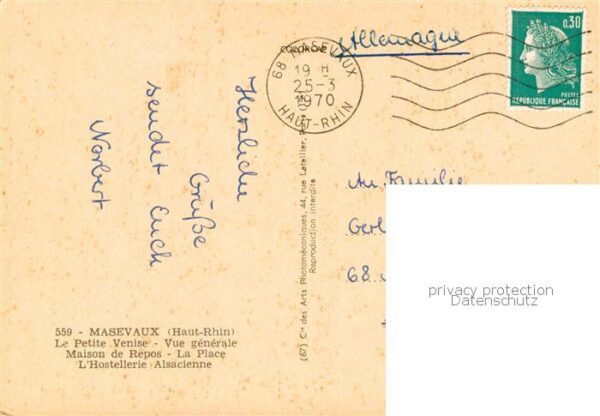 Allemagne
COLORCHR
68 MASEVAUX
19 H
25-3
1970
HAUT-RHIN
0,30
POSTES
REPUBLIQUE FRANÇAISE
Herzliche
Grüße
sendet Euch
Norbert
An Familie
68
privacy protection
Datenschutz
(67) Cie des Arts Photomécaniques, 44, rue Letellier,
Reproduction interdite
559 - MASEVAUX (Haut-Rhin)
Le Petite Venise - Vue générale
Maison de Repos - La Place
L'Hostellerie Alsacienne